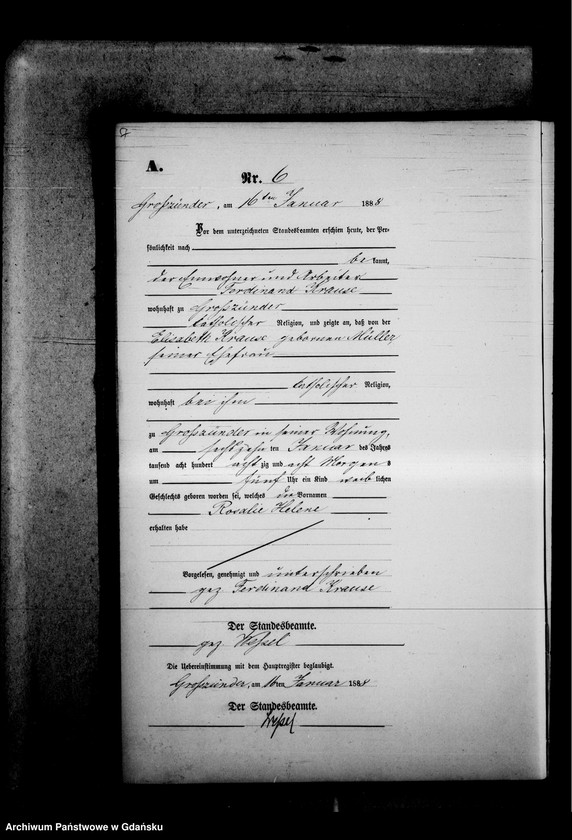 A.
Nr. 6
Großzünder, am 16ten Januar 1888
Vor dem unterzeichneten Standesbeamten erschien heute, der Per-
sönlichkeit nach
be kannt,
der Einwohner und Arbeiter
Ferdinand Krause
wohnhaft zu Großzünder
katholischer Religion, und zeigte an, daß von der
Elisabeth Krause gebornen Müller
seiner Ehefrau
katholischer Religion,
wohnhaft bei ihm
zu Großzünder in seiner Wohnung,
am sechszehn ten Januar des Jahres
tausend acht hundert acht zig und acht Morgens
um fünf Uhr ein Kind weib lichen
Geschlechts geboren worden sei, welches die Vornamen
Rosalie Helene
erhalten habe
Vorgelesen, genehmigt und unterschrieben
gez. Ferdinand Krause
Der Standesbeamte.
gez. Wessel
Die Uebereinstimmung mit dem Hauptregister beglaubigt.
Großzünder, am 16ten Januar 1888
Der Standesbeamte.
Wessel
Archiwum Państwowe w Gdańsku